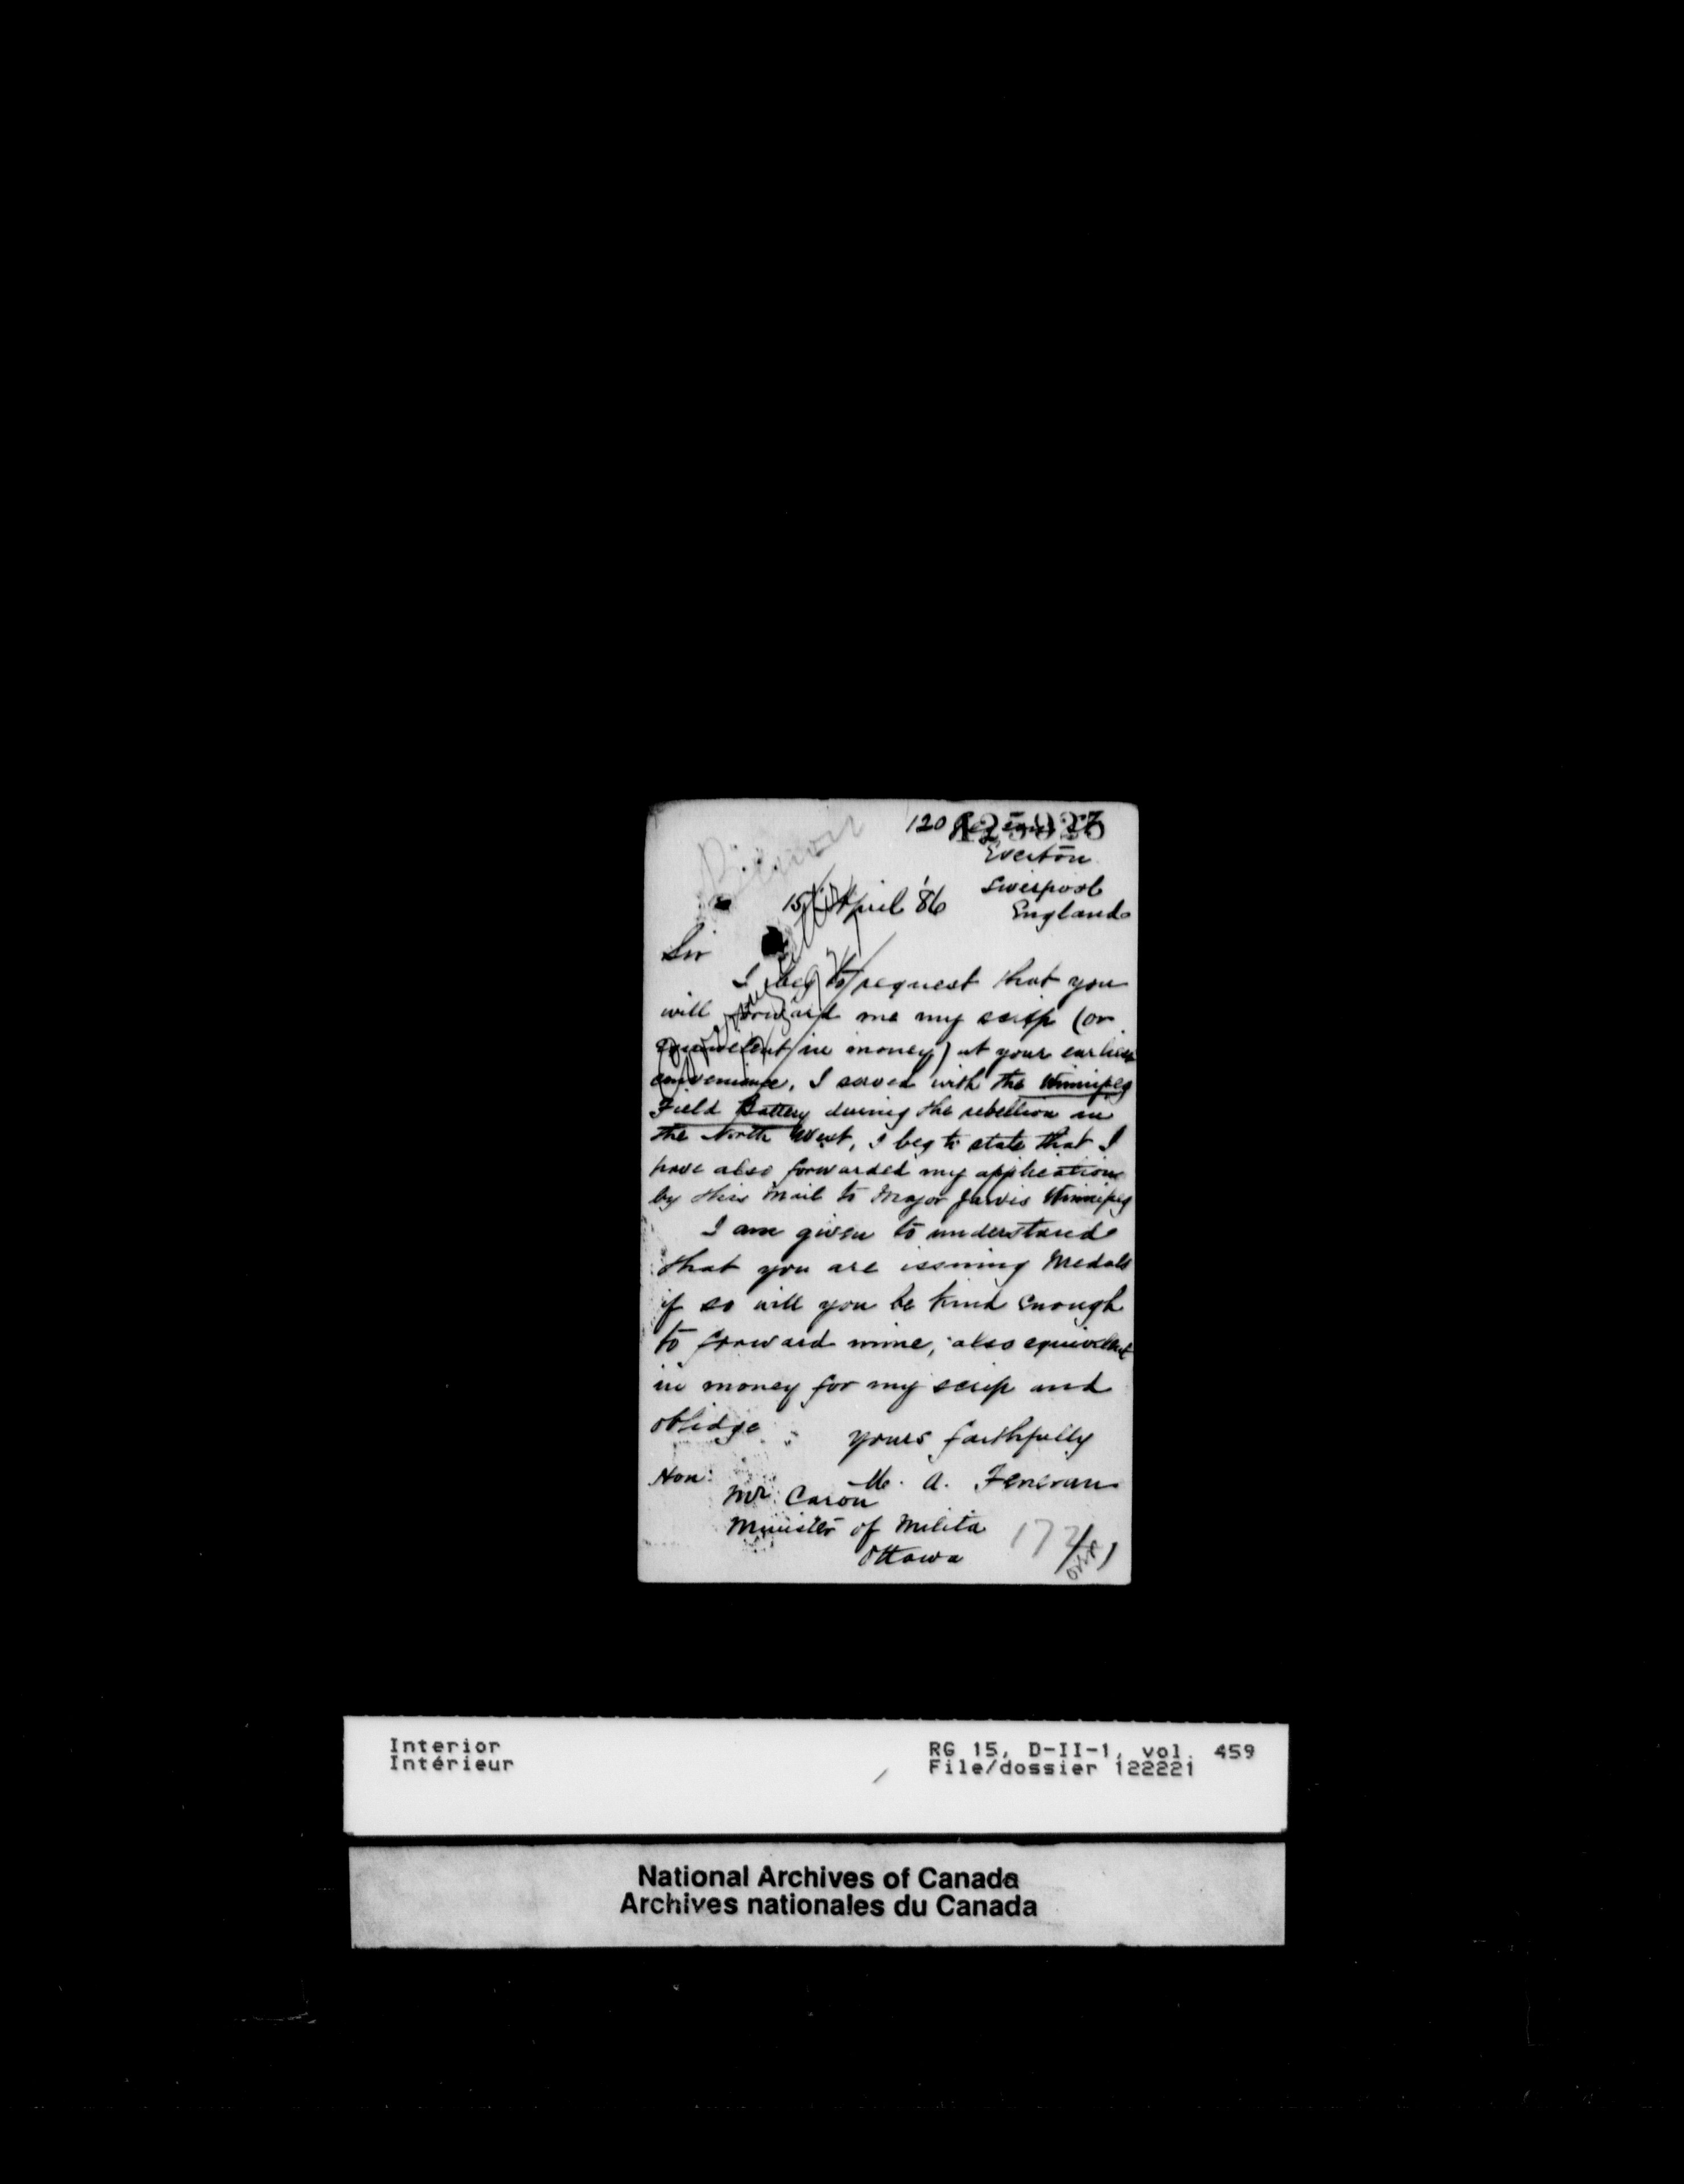 120
125923
Everton
Liverpool
15 April '86
England
Sir
I beg to request that you
will forward me my scrip (or
equivelent in money) at your earliest
convenience, I served with the Winnipeg
Field Battery during the rebellion in
the North West, I beg to state that I
have also forwarded my application
by this mail to Major Jarvis Winnipeg
I am given to understand
that you are issuing Medals
if so will you be kind enough
to forward mine, also equivelent
in money for my scrip and
oblidge
yours faithfully
M. A. Feneran
Hon:
Mr. Caron
Minister of Milita
Ottawa
Interior
Intérieur
RG 15, D-II-1, vol. 459
File/dossier 122221
National Archives of Canada
Archives nationales du Canada